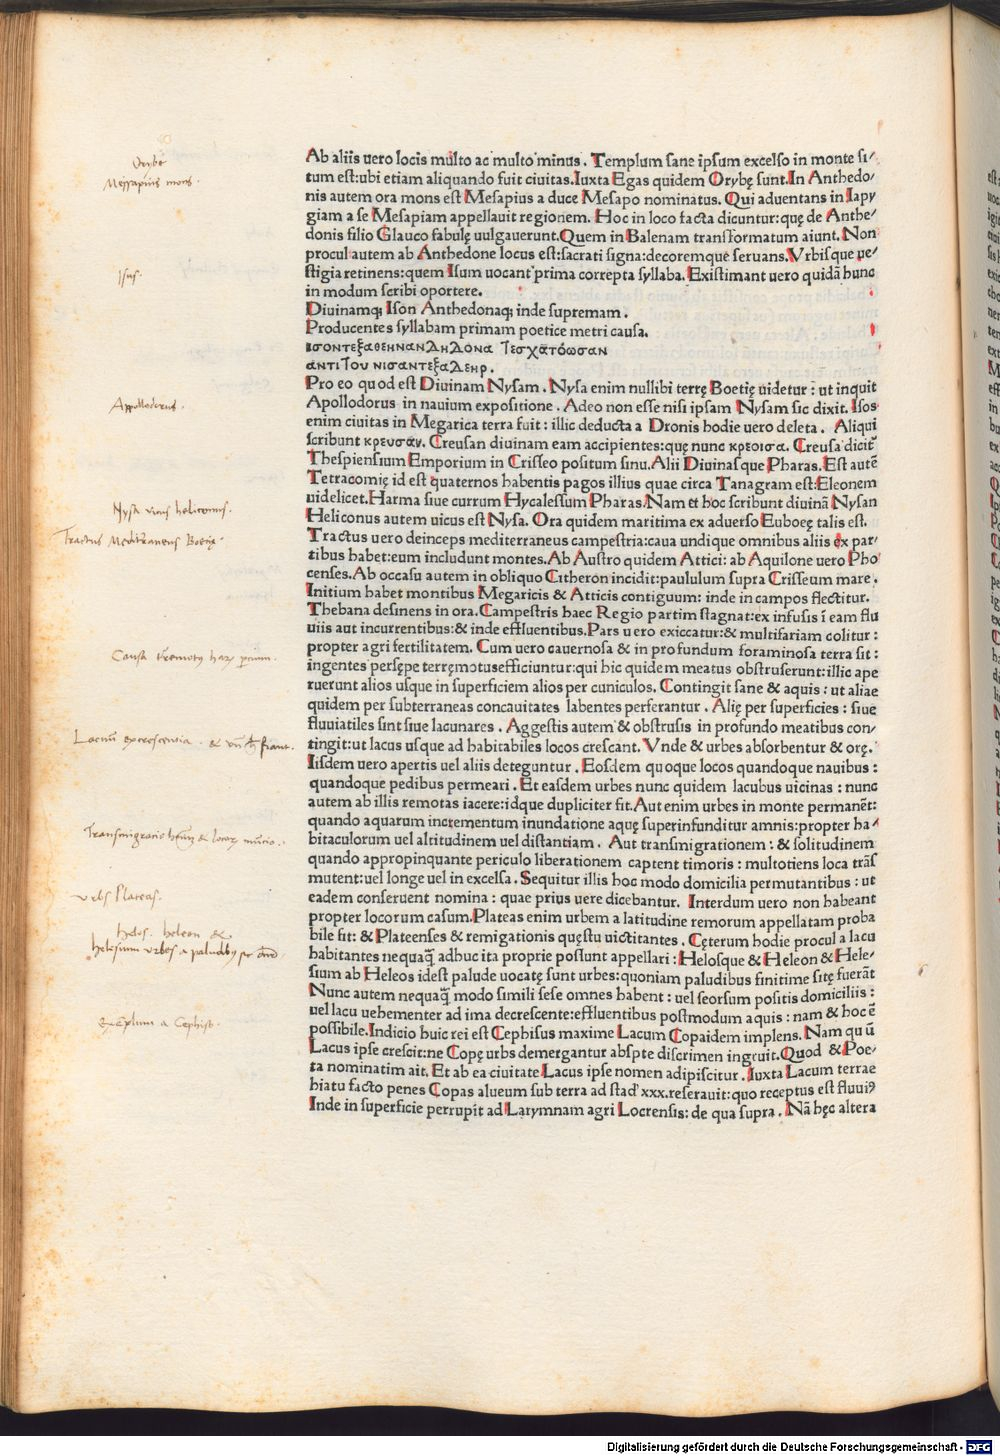 Orybe
Messapius mons.
Isus.
Appollodorus.
Nysa vicus heliconis.
Tractus Mediterraneus Boetię.
Causa
Lacuum excrescentia . &
Transmigratio
vrbs Plateas.
helos. heleon &
helesium vrbes a paludibus
Exemplum a Cephiso.
Ab aliis uero locis multo ac multo minus . Templum sane ipsum excelso in monte si⸗
tum est:ubi etiam aliquando fuit ciuitas.Iuxta Egas quidem Orybę sunt.In Anthedo⸗
nis autem ora mons est Mesapius a duce Mesapo nominatus. Qui aduentans in Iapy
giam a se Mesapiam appellauit regionem. Hoc in loco facta dicuntur:quę de Anthe⸗
donis filio Glauco fabulę uulgauerunt.Quem in Balenam transformatum aiunt. Non
procul autem ab Anthedone locus est:sacrati signa:decoremque seruans.Vrbisque ue⸗
stigia retinens:quem Isum uocant prima correpta syllaba. Existimant uero quidā hunc
in modum scribi oportere.
Diuinamq; Ison Anthedonaq; inde supremam .
Producentes syllabam primam poetice metri causa.
ισοντεξαθειηνανΔηΔονα ΤεσχατόωσαΝ
αντιΤου νισαντεξαΔεηρ.
Pro eo quod est Diuinam Nysam . Nysa enim nullibi terrę Boetię uidetur : ut inquit
Apollodorus in nauium expositione . Adeo non esse nisi ipsam Nysam sic dixit. Isos
enim ciuitas in Megarica terra fuit : illic deducta a Dronis hodie uero deleta . Aliqui
scribunt κρευσαν. Creusan diuinam eam accipientes:quę nunc κρεοισα. Creusa dicit᷑
Thespiensium Emporium in Crisseo positum sinu. Alii Diuinasque Pharas. Est autē
Tetracomię id est quaternos habentis pagos illius quae circa Tanagram est:Eleonem
uidelicet.Harma siue currum Hycalessum Pharas.Nam et hoc scribunt diuinā Nysan
Heliconus autem uicus est Nysa. Ora quidem maritima ex aduerso Euboeę talis est.
Tractus uero deinceps mediterraneus campestria:caua undique omnibus aliis ex par⸗
tibus habet:eum includunt montes. Ab Austro quidem Attici: ab Aquilone uero Pho
censes.Ab occasu autem in obliquo Citheron incidit:paululum supra Crisseum mare.
Initium habet montibus Megaricis & Atticis contiguum: inde in campos flectitur.
Thebana desinens in ora. Campestris haec Regio partim stagnat:ex infusis ī eam flu
uiis aut incurrentibus:& inde effluentibus.Pars uero exiccatur:& multifariam colitur :
propter agri fertilitatem. Cum uero cauernosa & in profundum foraminosa terra sit :
ingentes persępe terręmotus efficiuntur:qui hic quidem meatus obstruserunt:illic ape
ruerunt alios usque in superficiem alios per cuniculos. Contingit sane & aquis : ut aliae
quidem per subterraneas concauitates labentes perferantur . Alię per superficies : siue
fluuiatiles sint siue lacunares . Aggestis autem & obstrusis in profundo meatibus con⸗
tingit:ut lacus usque ad habitabiles locos crescant. Vnde & urbes absorbentur & orę.
Iisdem uero apertis uel aliis deteguntur . Eosdem quoque locos quandoque nauibus :
quandoque pedibus permeari . Et easdem urbes nunc quidem lacubus uicinas : nunc
autem ab illis remotas iacere:idque dupliciter fit.Aut enim urbes in monte permanēt:
quando aquarum incrementum inundatione aquę superinfunditur amnis:propter ha⸗
bitaculorum uel altitudinem uel distantiam . Aut transmigrationem : & solitudinem
quando appropinquante periculo liberationem captent timoris : multotiens loca trās
mutent:uel longe uel in excelsa . Sequitur illis hoc modo domicilia permutantibus : ut
eadem conseruent nomina : quae prius uere dicebantur. Interdum uero non habeant
propter locorum casum. Plateas enim urbem a latitudine remorum appellatam proba
bile fit: & Plateenses & remigationis quęstu uictitantes . Cęterum hodie procul a lacu
habitantes nequaq̄ adhuc ita proprie possunt appellari : Helosque & Heleon & Hele⸗
sium ab Heleos idest palude uocatę sunt urbes:quoniam paludibus finitime sitę fuerāt
Nunc autem nequaq̄ modo simili sese omnes habent : uel seorsum positis domiciliis :
uel lacu uehementer ad ima decrescente:effluentibus postmodum aquis : nam & hoc ē
possibile.Indicio huic rei est Cephisus maxime Lacum Copaidem implens. Nam qu ū
Lacus ipse crescit:ne Copę urbs demergantur abspte discrimen ingruit.Quod & Poe⸗
ta nominatim ait. Et ab ea ciuitate Lacus ipse nomen adipiscitur . Iuxta Lacum terrae
hiatu facto penes Copas alueum sub terra ad stad᾽ xxx.reserauit:quo receptus est fluuiꝰ
Inde in superficie perrupit ad Larymnam agri Locrensis: de qua supra . Nā hęc altera
Digitalisierung gefördert durch die Deutsche Forschungsgemeinschaft - DFG